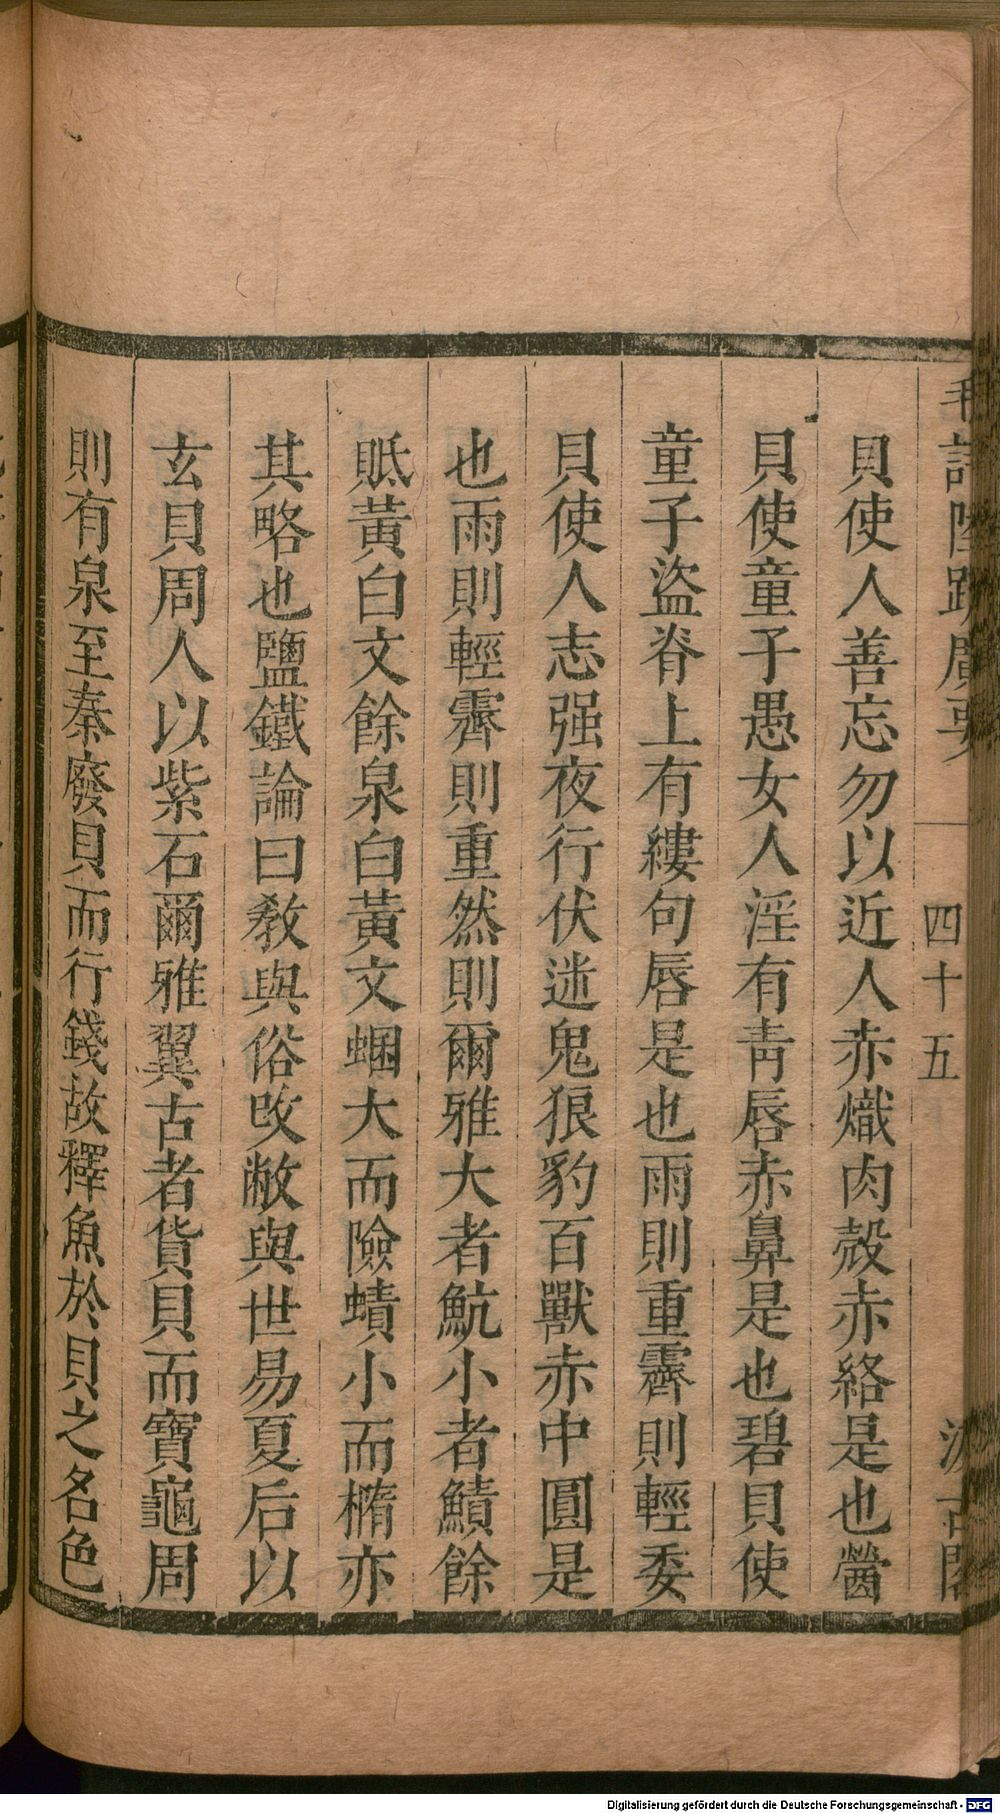 毛詩陸疏廣要
四十五
汲古閣
貝使人善忘勿以近人赤熾肉殻赤絡是也䘌
貝使童子愚女人淫有青唇赤鼻是也碧貝使
童子盜脊上有縷句唇是也雨則重霽則輕委
貝使人志强夜行伏迷鬼狼豹百獸赤中圓是
也雨則輕霽則重然則爾雅大者魧小者鰿餘
貾黃白文餘泉白黃文蜠大而險蟦小而橢亦
其略也鹽鐵論曰教與俗改敝與世易夏后以
玄貝周人以紫石爾雅翼古者貨貝而寶龜周
則有泉至秦廢貝而行錢故釋魚於貝之名色
Digitalisierung gefördert durch die Deutsche Forschungsgemeinschaft - DFG